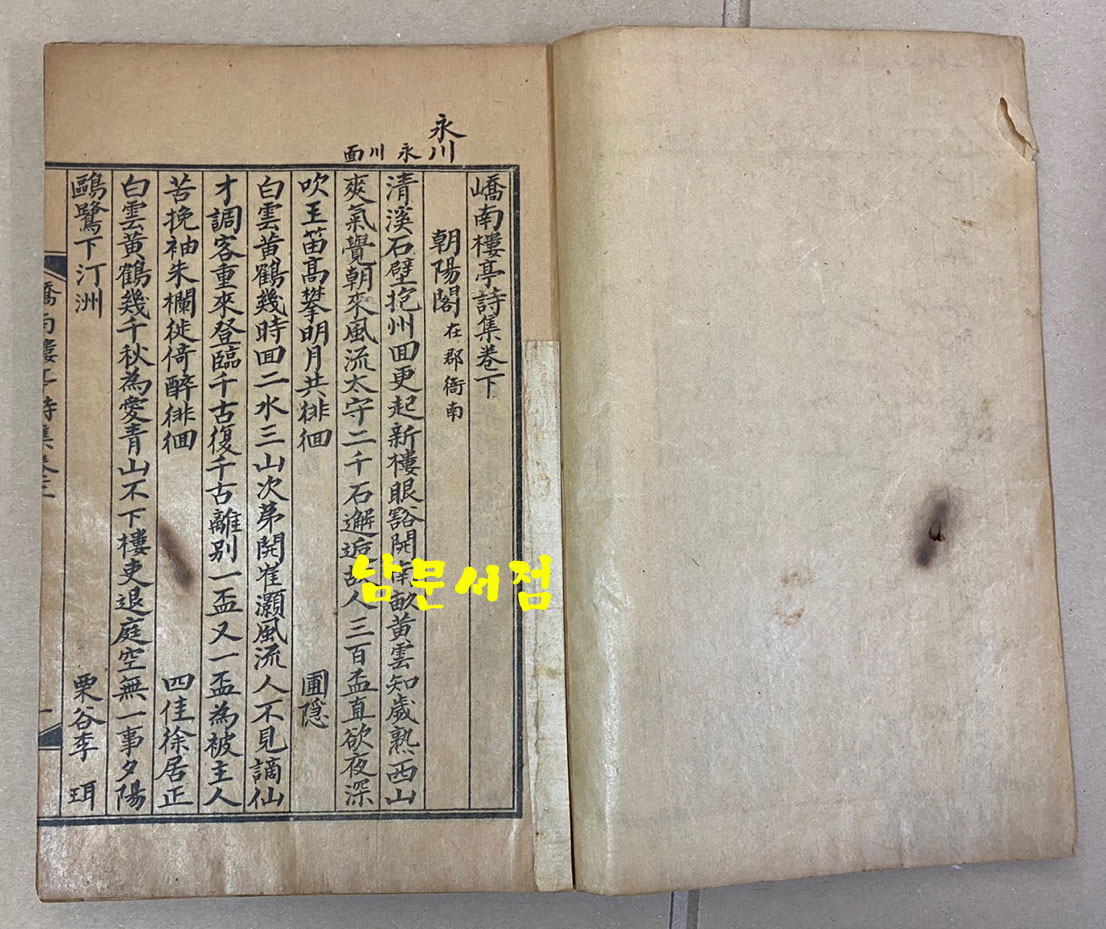 永川
永川面
嶠南樓亭詩集卷下
朝陽閣 在郡衙南
清溪石壁抱州回更起新樓眼豁開南畝黃雲知歲熟西山
爽氣覺朝來風流太守二千石邂逅故人三百盃直欲夜深
吹玉笛高攀明月共徘徊 圃隱
白雲黃鶴幾時回二水三山次第開崔灝風流人不見謫仙
才調客重來登臨千古復千古離別一盃又一盃為被主人
苦挽袖朱欄徙倚醉徘徊 四佳徐居正
白雲黃鶴幾千秋為愛青山不下樓吏退庭空無一事夕陽
鷗鷺下汀洲 栗谷李珥
嶠南樓亭詩集卷下
一
남문서점